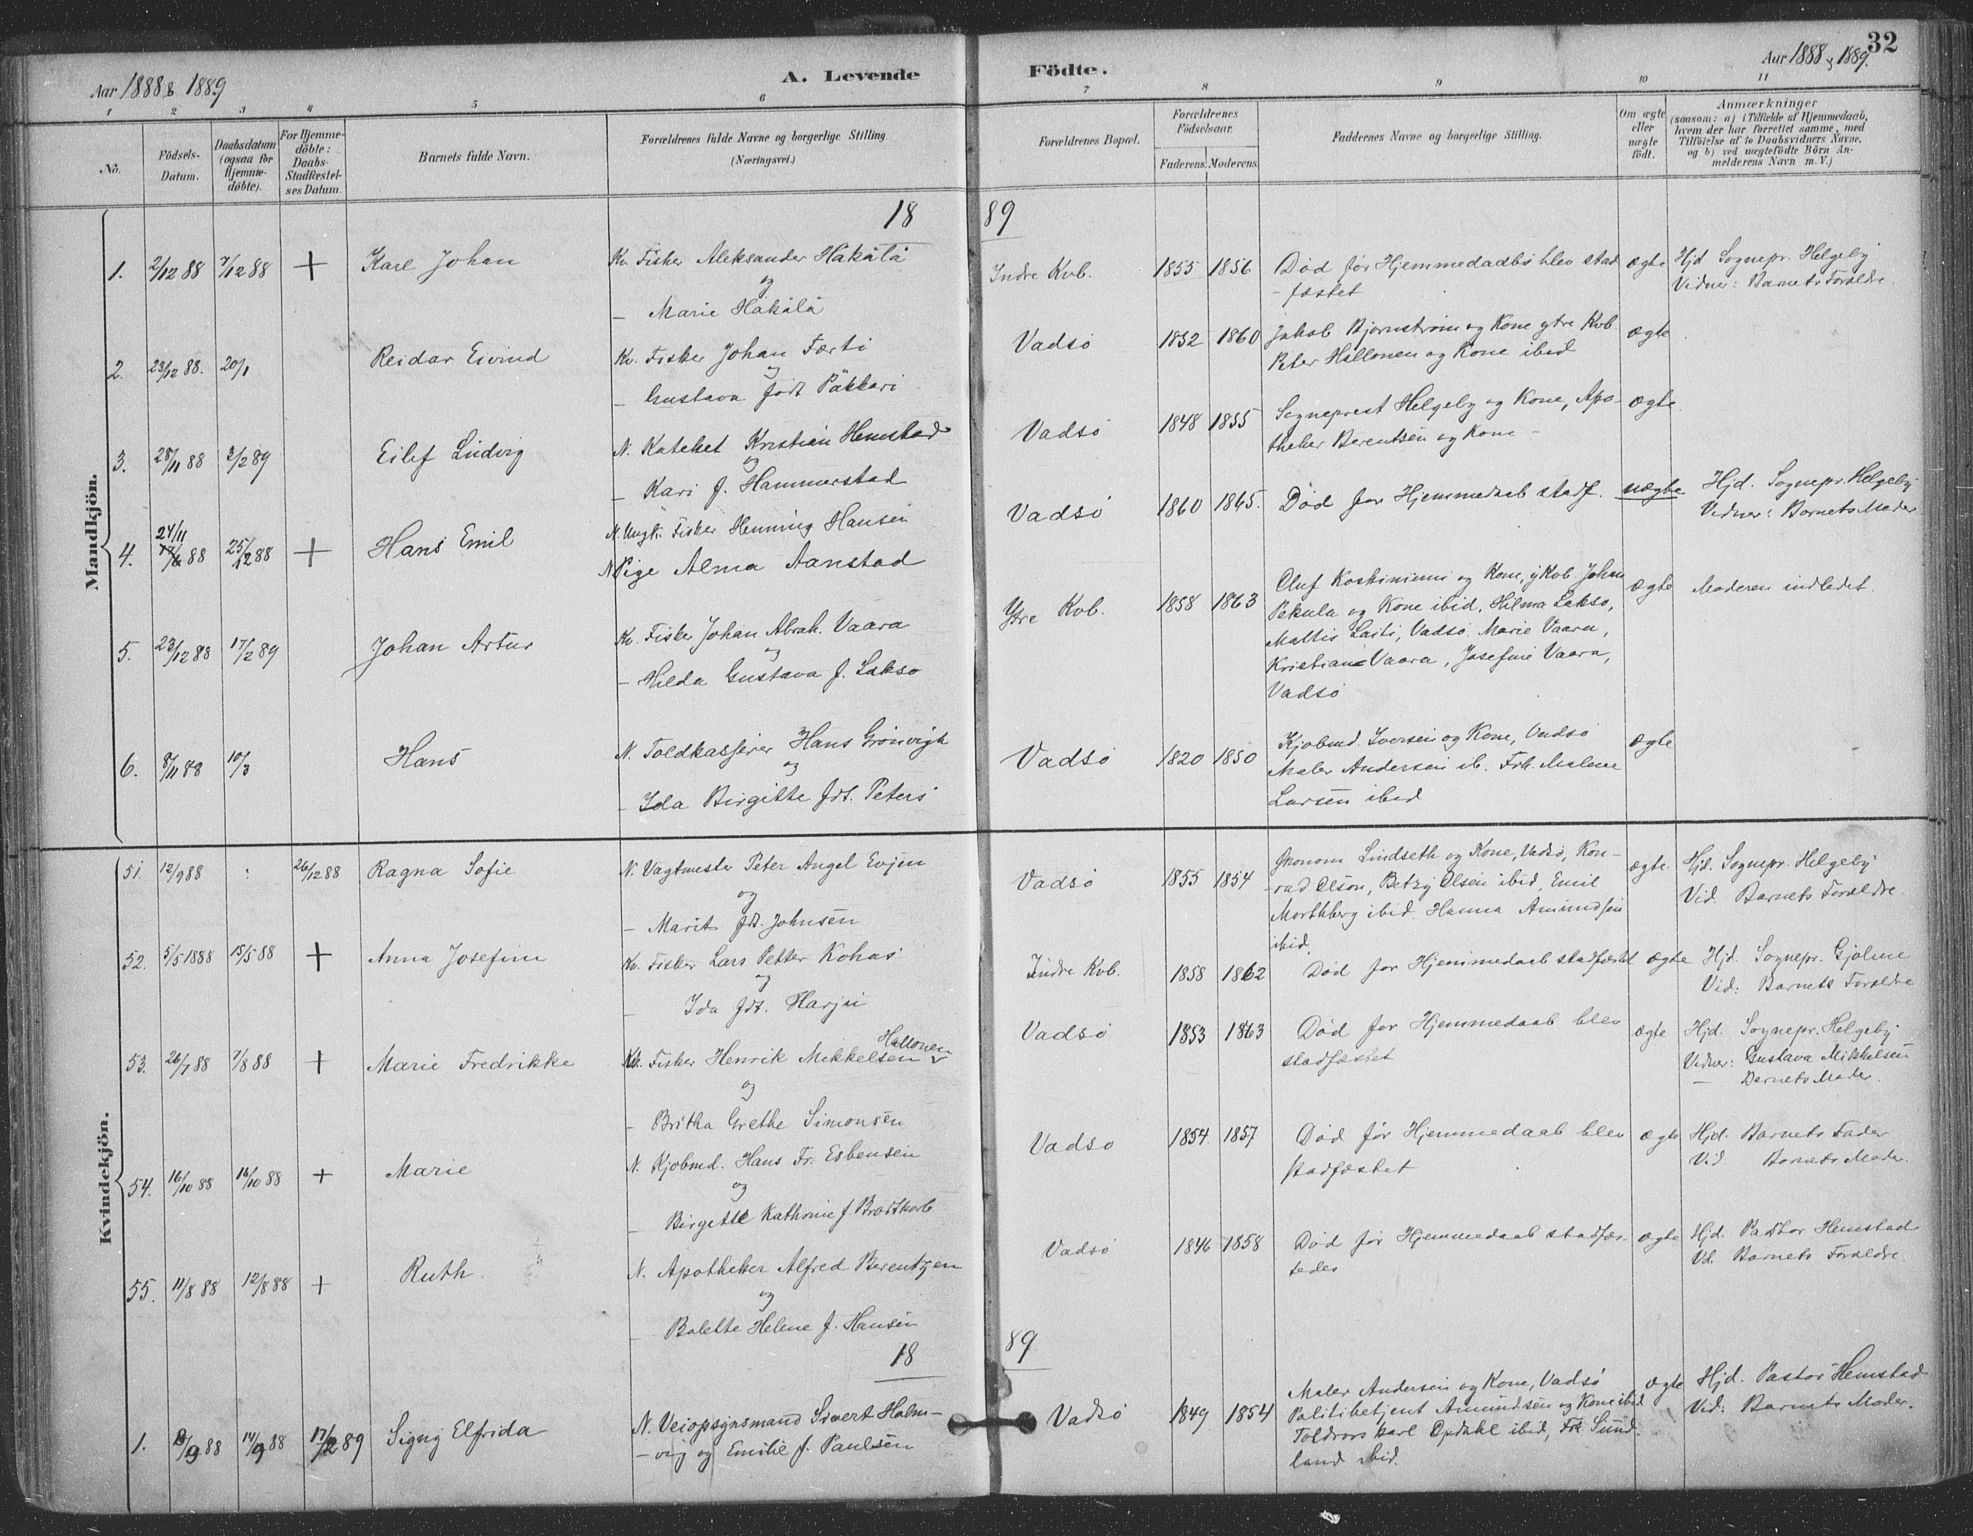 Aar 1888 & 1889
A. Levende
Födte.
Aar 1888 & 1889.
32
1 2 3 4 5 6 7 8 9 10 11
No.
Födsels-Datum.
Daabsdatum (ogsaa for Hjemmedöbte).
For Hjemmedöbte: Daabs-Stadfæstelses Datum.
Barnets fulde Navn.
Forældrenes fulde Navne og borgerlige Stilling.
(Næringsvei.)
Forældrenes Bopæl.
Forældrenes Födselsaar.
Faderens. Moderens.
Faddernes Navne og borgerlige Stilling.
Om ægte eller uægte födt.
Anmærkninger
(saasom: a) i Tilfælde af Hjemmedaab, hvem der har forrettet samme, med Tilföielse af to Daabsvidners Navne, og b) ved uægtefödte Börn Anmelderens Navn m. V.)
Mandkjön.
18 89
1. 2/12 88 7/12 88 + Karl Johan
Kv. Fisker Aleksander Hakala
og
— Marie Hakala
Indre Kvb. 1855 1856
Död før Hjemmedaabs blev stad
-fæstet
ægte
Hjd Sognepr. Helgeby
Vidner: Barnets Forældre.
2. 23/12 88. 20/1 Reidar Eivind
Kv. Fisker Johan Færti
og
— Gustava födt Pakkari
Vadsö 1852 1860
Jakob Bjørnstrøm og Kone ytre Kvb
Peter Hallonen og Kone ibid
ægte
3. 28/11 88 3/2 89 Eilef Ludvig
N. Kateket Kristian Hemstad
og
— Kari f. Hammerstad
Vadsö 1848 1855
Sogneprest Helgeby og Kone, Apo-
theker Berentsen og Kone
ægte
4. 24/11 88 25/12 88 + Hans Emil
N. Ungk. Fisker Henning Hansen
N. Pige Alma Aanstad
Vadsö 1860 1865.
Död før Hjemmedaab stadf.
uægte
Hjd. Sognepr. Helgeby
Vidner: Barnets Moder
5. 23/12 88 17/2 89 Johan Artur
Kv. Fisker Johan Abrah. Vaara
og
— Hilda Gustava f. Lakso
Ytre Kvb. 1858 1863
Oluf Koskiniemi og Kone, y Kvb Johan
Pekula og Kone ibid, Hilma Lakso,
Mattis Lasti, Vadsö Marie Vaara,
Kristian Vaara, Josefine Vaara,
Vadsö
ægte
Moderen indledet.
6. 8/11 88 10/3 Hans
N. Toldkasserer Hans Grönvigh
og
— Ida Birgitte fdt. Peters
Vadsö 1820 1850
Kjøbmd. Iversen og Kone, Vadsö
Maler Andersen ib. Frk. Malene
Larsen ibid
ægte
Kvindekjön.
51. 12/9 88 26/12 88 Ragna Sofie
N. Vagtmester Peter Angel Evjen
og
— Marit fdt. Johnsen
Vadsö 1855 1854
Økonom Lindseth og Kone, Vadsö, Kon-
rad Olson, Betzy Olsen ibid, Emil
Morthberg ibid Hanna Amundsen
ibid.
ægte.
Hjd. Sognepr. Helgeby
Vid. Barnets Forældre.
52. 5/5 1888 15/5 88 + Anna Josefine
Kv. Fisker Lars Petter Kohas
og
— Ida fdt. Harju
Indre Kvb. 1858 1862
Död før Hjemmedaab stadfæstet
ægte
Hjd. Sognepr. Gjølme
Vid: Barnets Forældre
53. 26/7 88 7/8 88 + Marie Fredrikke
Kv. Fisker Henrik Mekkelsen Hallonen
og
— Britha Grethe Simonsen
Vadsö 1853 1863
Död før Hjemmedaab blev
stadfæstet
ægte
Hjd. Sognepr. Helgeby
Vidner: Gustava Mikkelsen
— Barnets Moder.
54. 16/10 88 16/10 88 + Marie
N. Kjøbmd. Hans Fr. Esbensen
og
— Birgette Kathrine f. Brodtkorb
Vadsö 1854 1857
Död før Hjemmedaab blev
stadfæstet
ægte
Hjd. Barnets Fader
Vid Barnets Moder.
55. 11/8 88 12/8 88 + Ruth.
N. Apotheker Alfred Berentzen
og
— Bolette Helene f. Hansen
Vadsö 1846 1858
Död før Hjemmedaab stadfæs-
tedes
ægte
Hjd. Pastor Hemstad
Vd. Barnets Forældre.
18 89
1. 9 88 14/9 88 17/2 89 Signy Elfrida
N. Veiopsynsmand Sivert Holm-
-vig og Emilie f. Paulsen
Vadsö 1849 1854
Maler Andersen og Kone, Vadsö
Politibetjent Amundsen og Kone ibid
Toldrorskarl Opdahl ibid, Frk Sund
land ibid.
ægte
Hjd. Pastor Hemstad
Vid: Barnets Moder.